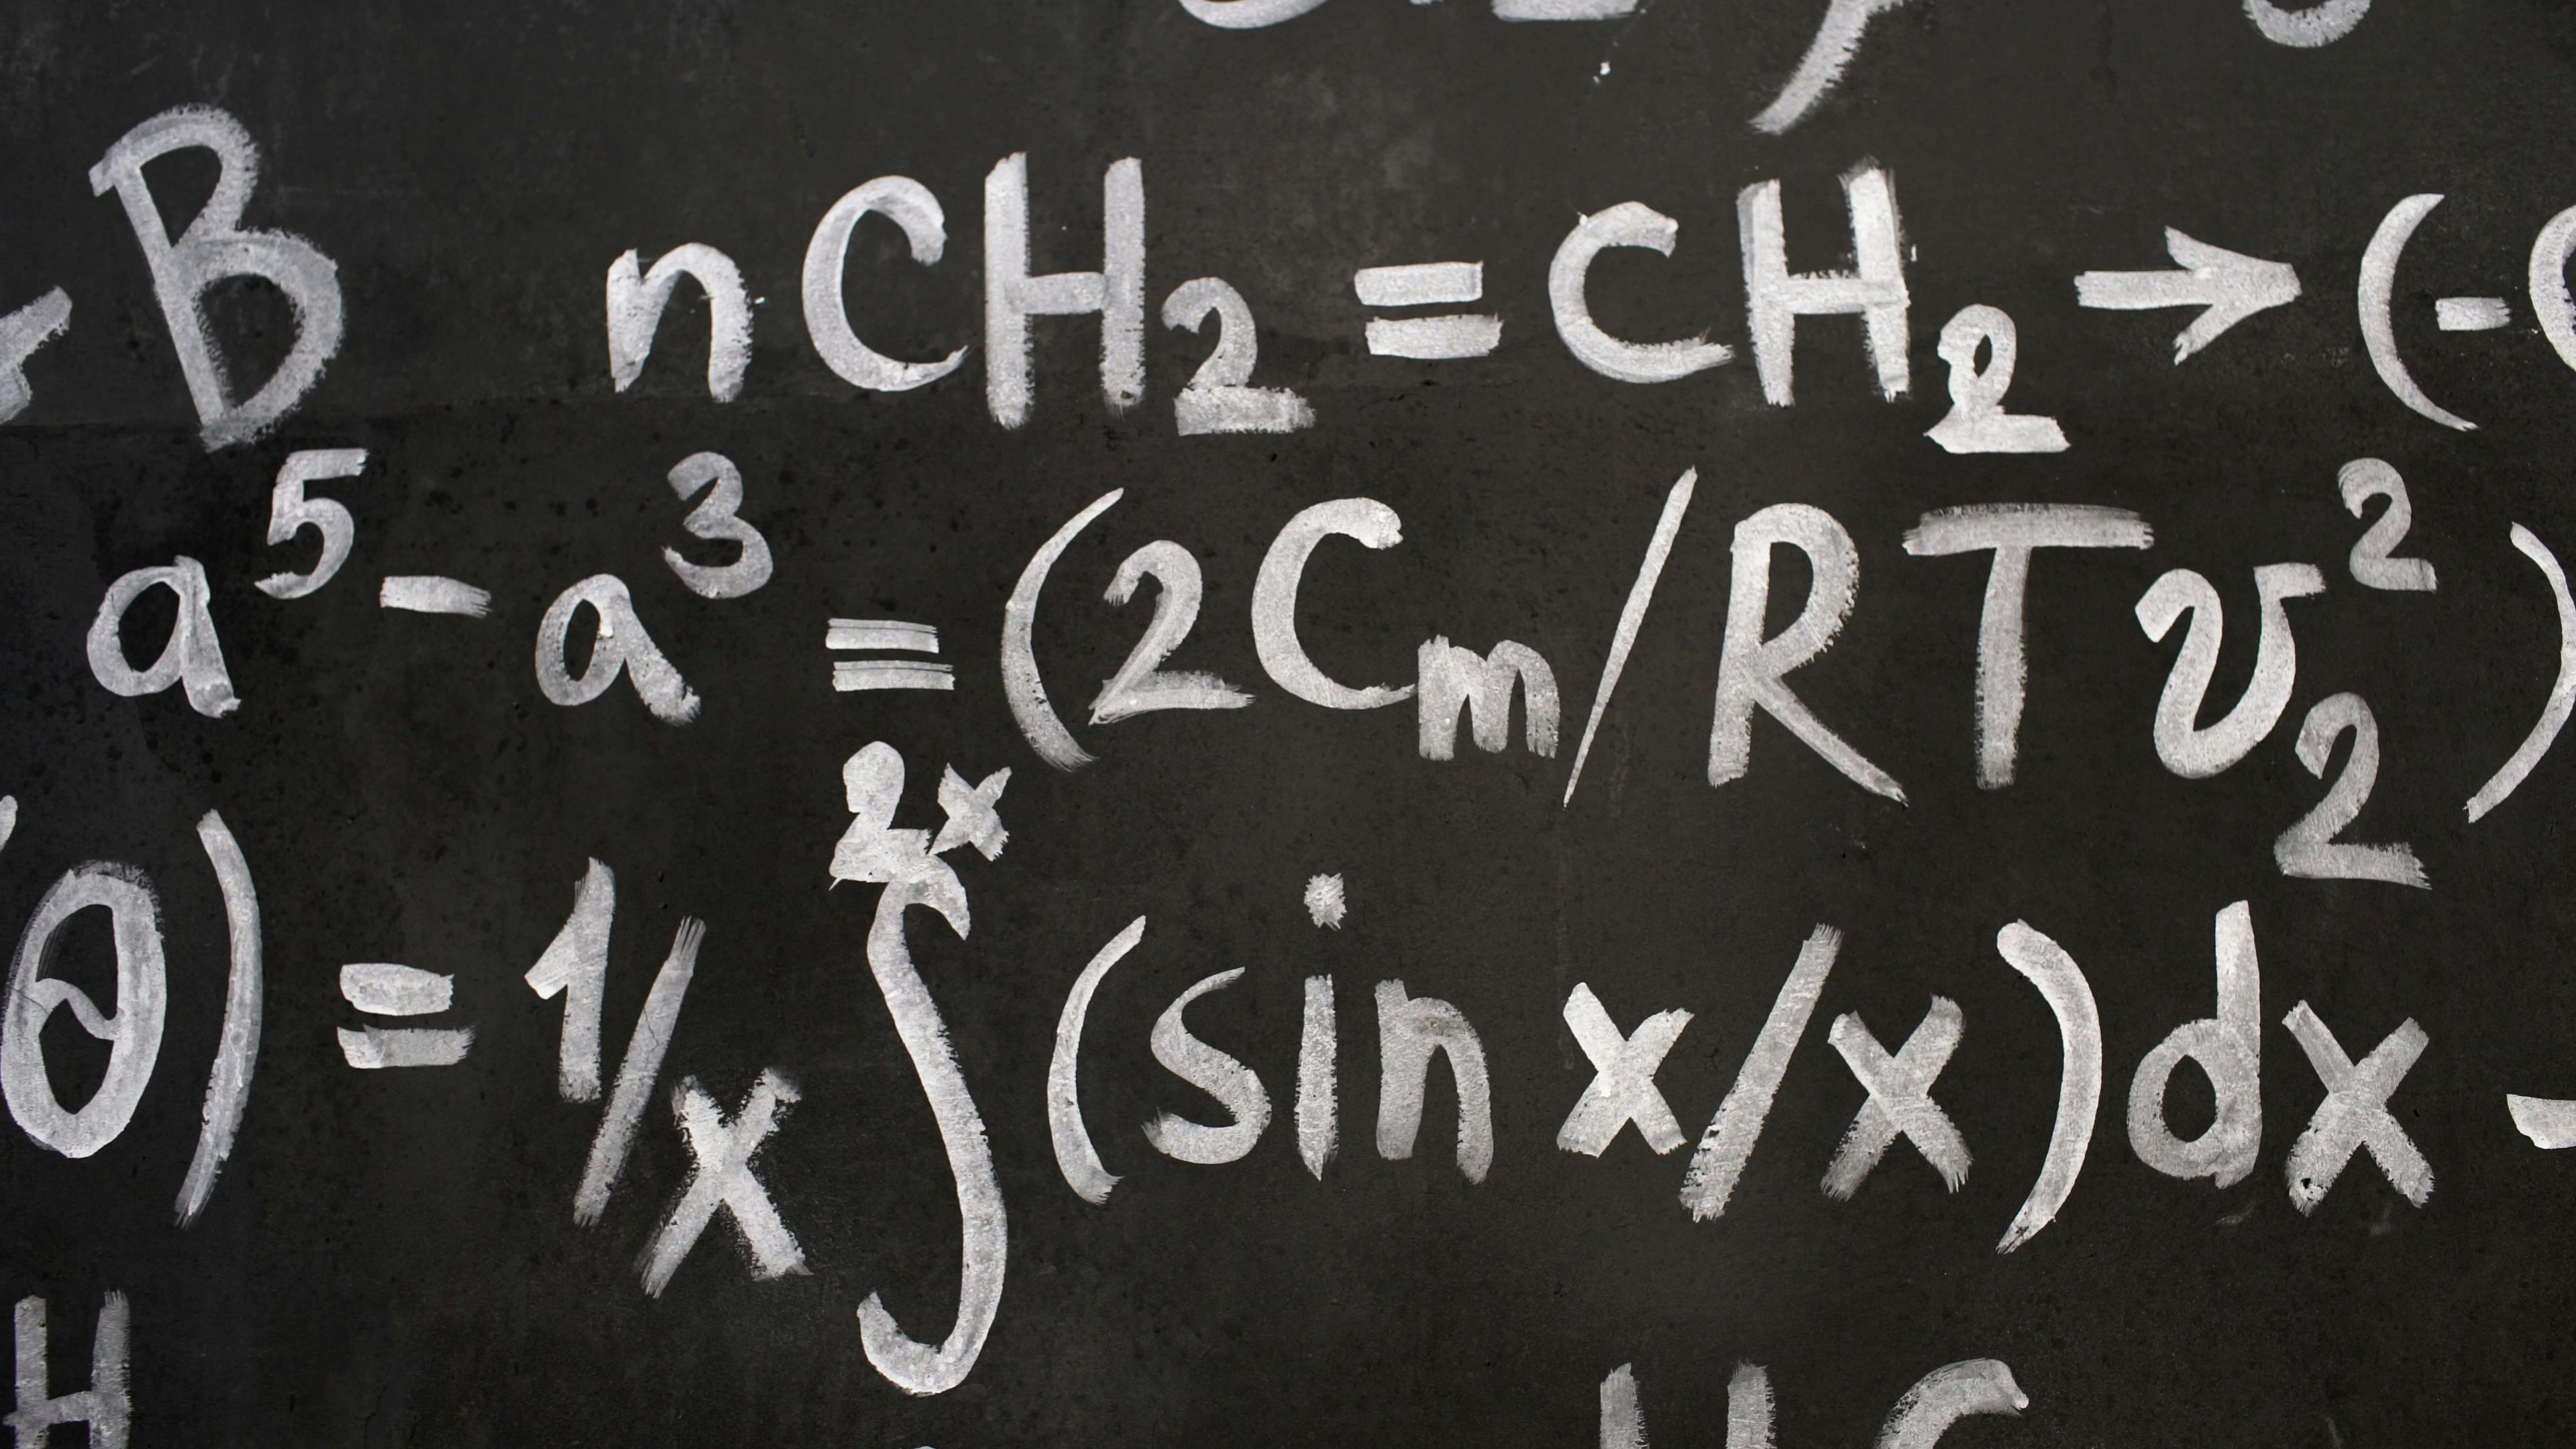 B nCH₂ = CH₂ → (-
a⁵ - a³ = (2Cₘ/RTv₂²)
θ) = 1/x ∫²ˣ (sin x/x)dx -
H